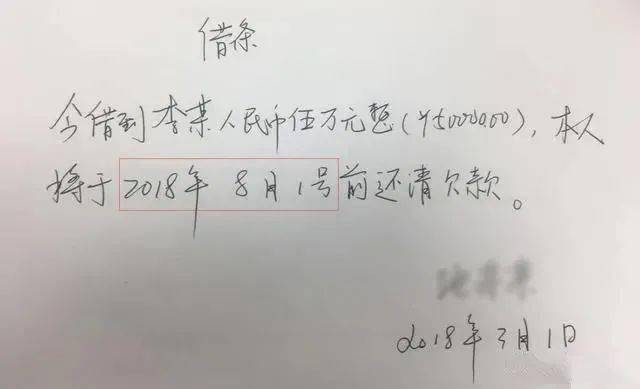 借条
今借到李某人民币伍万元整(¥50000.00),本人
将于2018年8月1号前还清欠款。
2018年3月1日